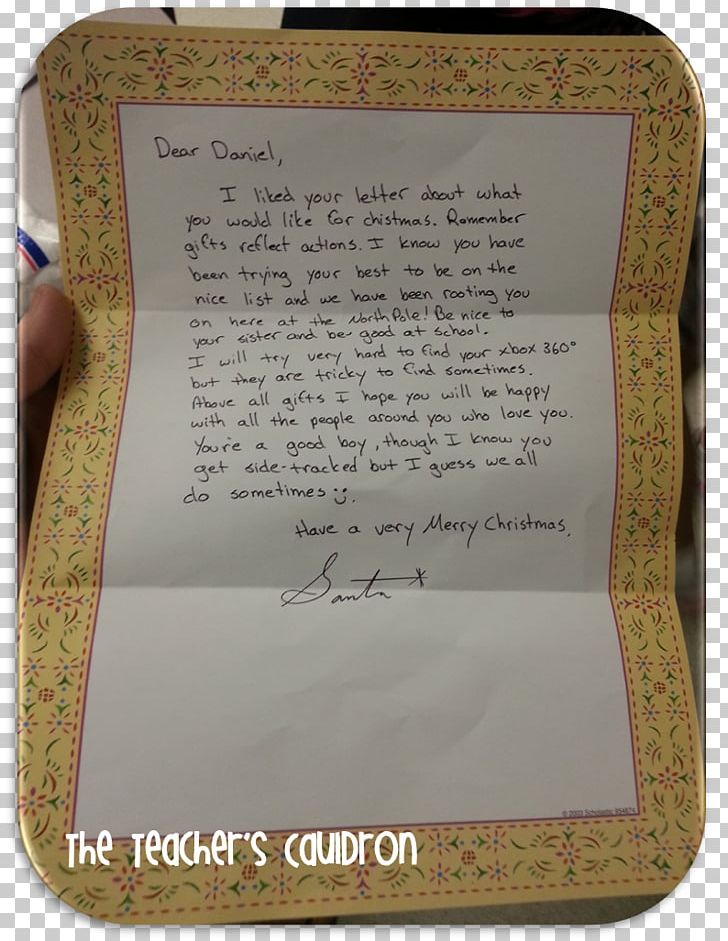 Dear Daniel,
I liked your letter about what
you would like for chistmas. Remember
gifts reflect actions. I know you have
been trying your best to be on the
nice list and we have been rooting you
on here at the North Pole! Be nice to
your sister and be good at school.
I will try very hard to find your xbox 360°
but they are tricky to find sometimes.
Above all gifts I hope you will be happy
with all the people around you who love you.
You're a good boy, though I know you
get side-tracked but I guess we all
do sometimes :).
Have a very Merry Christmas.
Santa *
© 2003 Scholastic
The Teacher's Cauldron